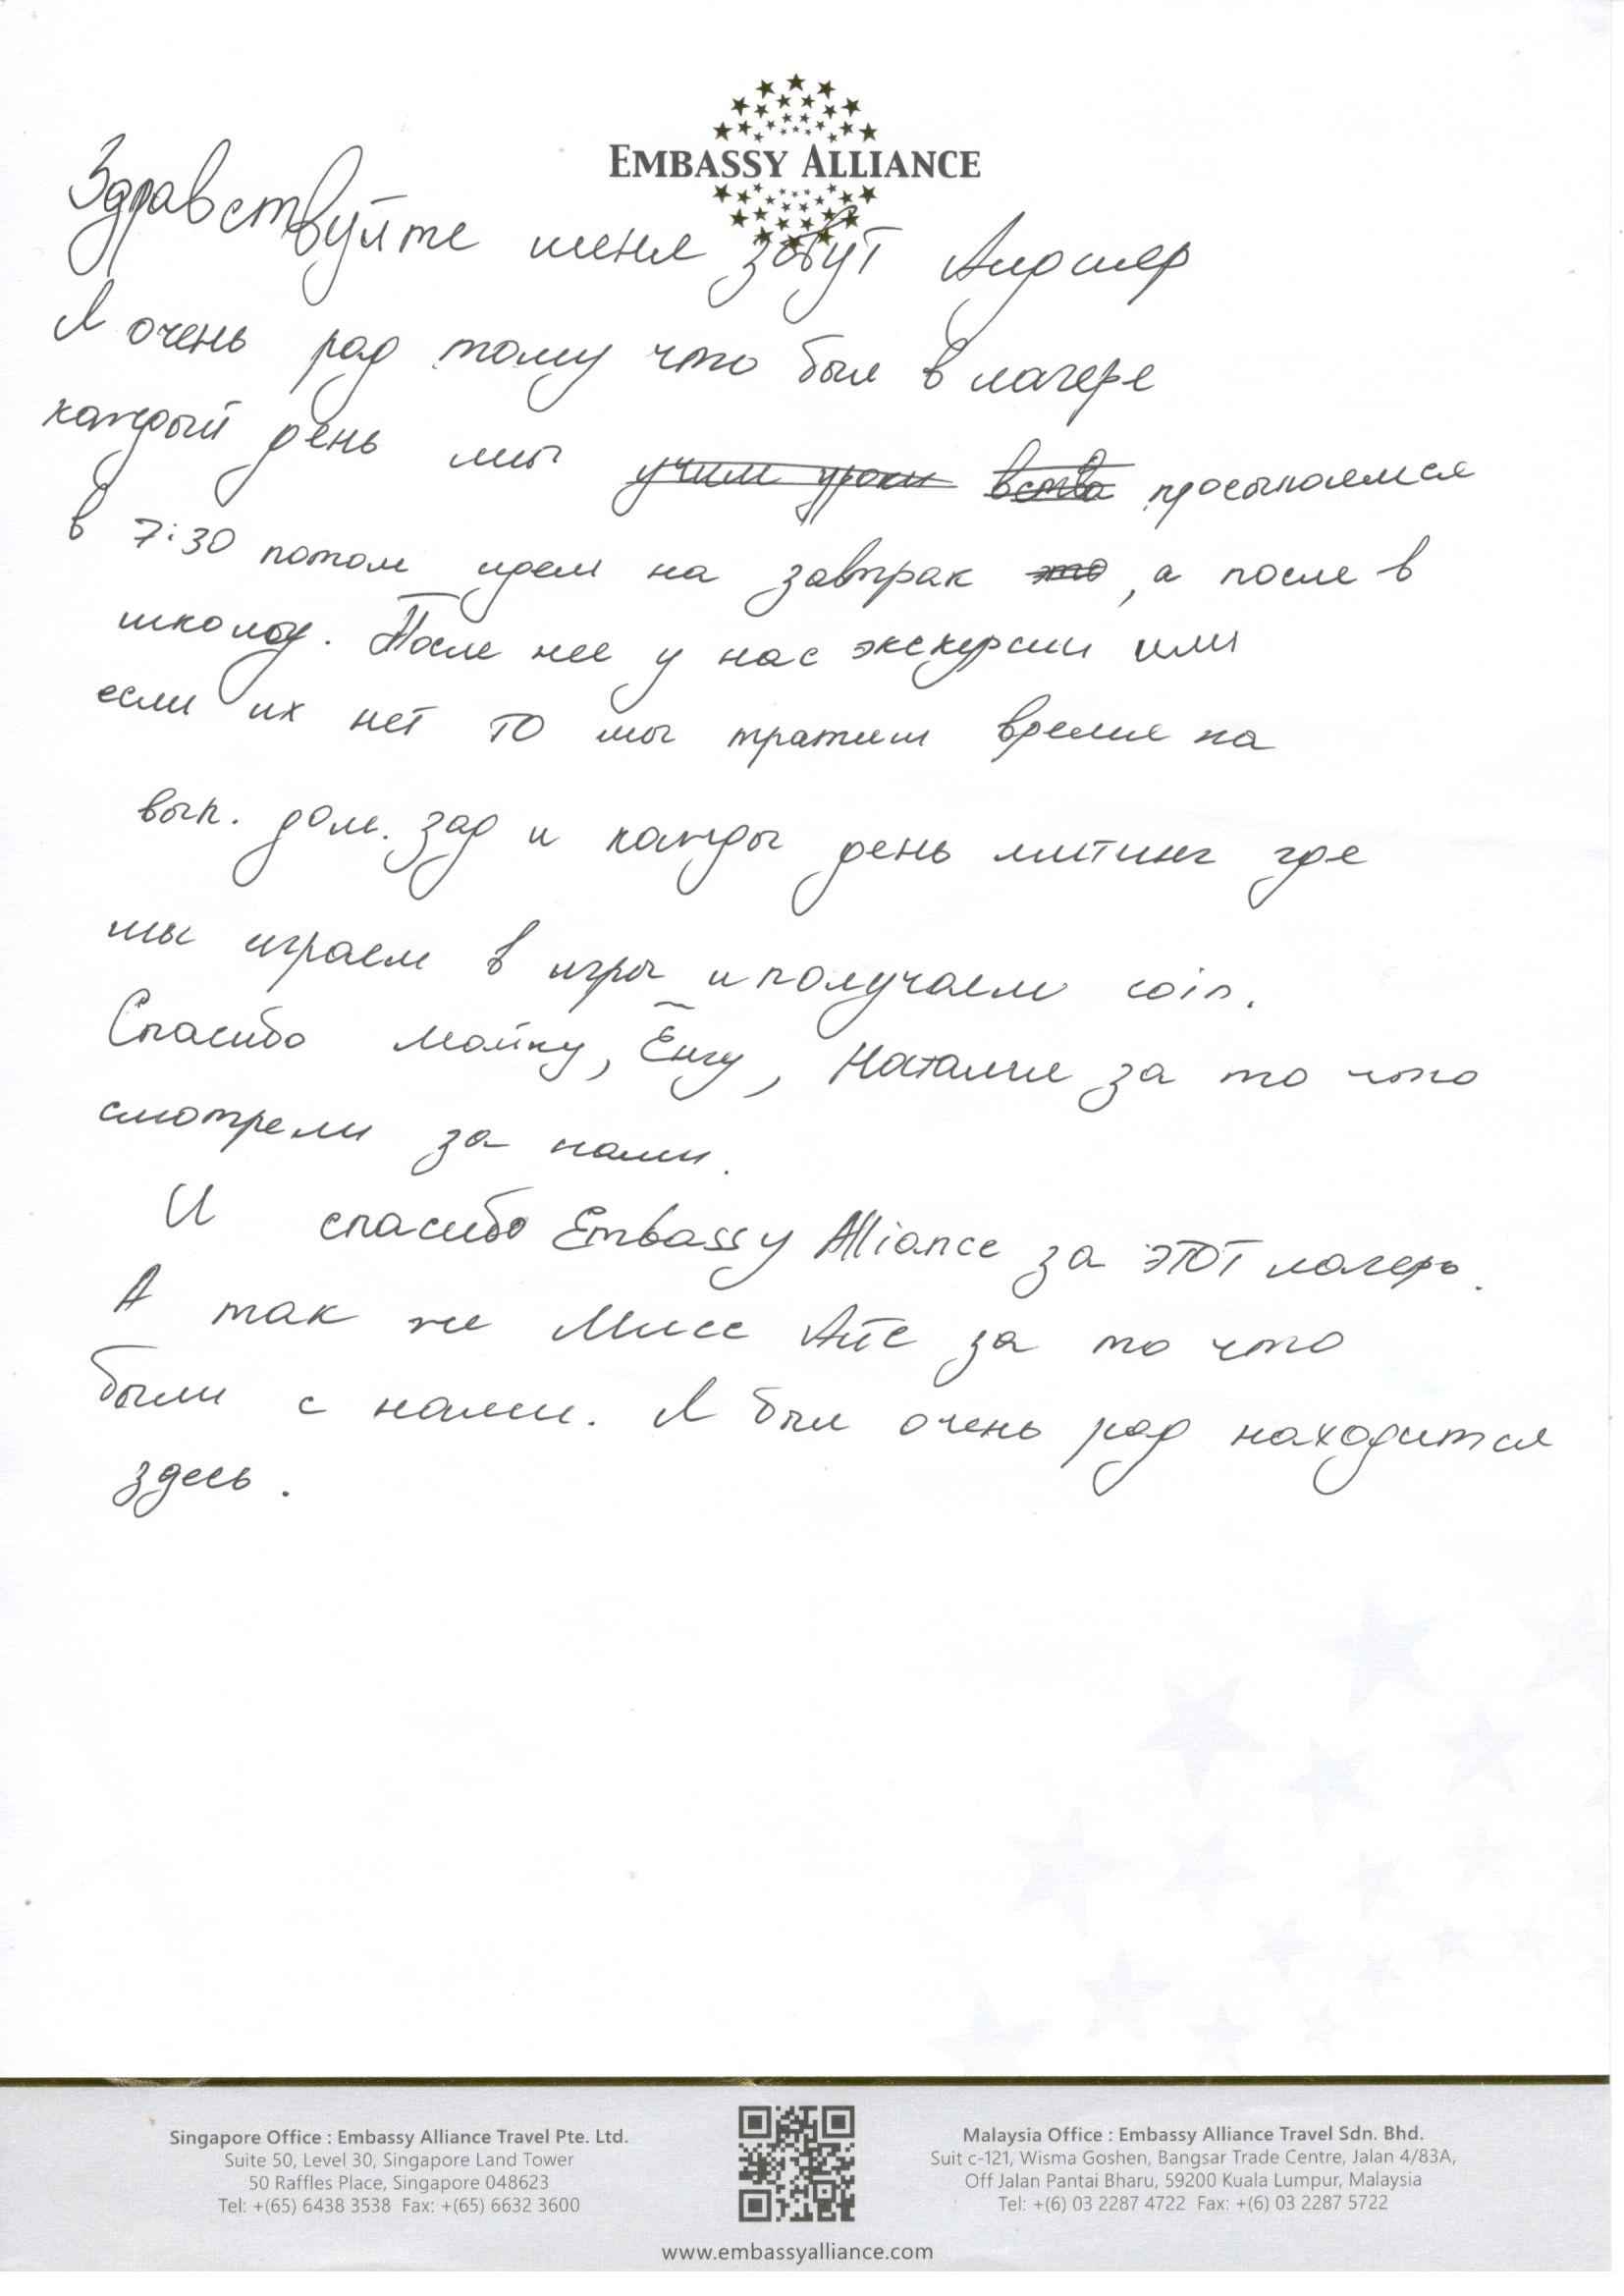 EMBASSY ALLIANCE
Здравствуйте меня зовут Алдияр
Я очень рад тому что был в лагере
каждый день мы учим уроки просыпаемся
в 7:30 потом идем на завтрак это, а после в
школу. После нее у нас экскурсии или
если их нет то мы тратим время на
вып. дом. зад и кажды день митинг где
мы играем в игры и получаем coin.
Спасибо Майку, Ёнгу, Наталие за то что
смотрели за нами.
И спасибо Embassy Alliance за этот лагерь.
А так же Мисс за то что
были с нами. Я был очень рад находится
здесь.
Singapore Office : Embassy Alliance Travel Pte. Ltd.
Suite 50, Level 30, Singapore Land Tower
50 Raffles Place, Singapore 048623
Tel: +(65) 6438 3538 Fax: +(65) 6632 3600
Malaysia Office : Embassy Alliance Travel Sdn. Bhd.
Suit c-121, Wisma Goshen, Bangsar Trade Centre, Jalan 4/83A,
Off Jalan Pantai Bharu, 59200 Kuala Lumpur, Malaysia
Tel: +(6) 03 2287 4722 Fax: +(6) 03 2287 5722
www.embassyalliance.com